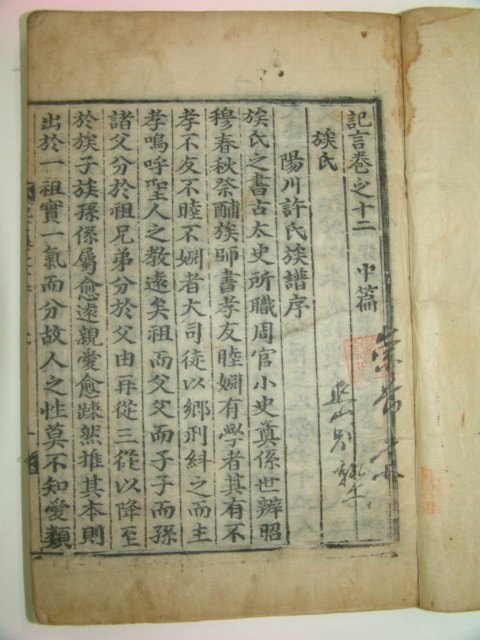 記言卷之十二 中篇
族氏
陽川許氏族譜序
族氏之書古太史所職周官小史奠係世辨昭
穆春秋祭酺族師書孝友睦婣有學者其有不
孝不友不睦不婣者大司徒以鄕刑糾之而主
孝嗚呼聖人之敎遠矣祖而父父而子子而孫
諸父分於祖兄弟分於父由再從三從以降至
於族子族孫係屬愈遠親愛愈踈然推其本則
出於一祖實一氣而分故人之性莫不知愛類